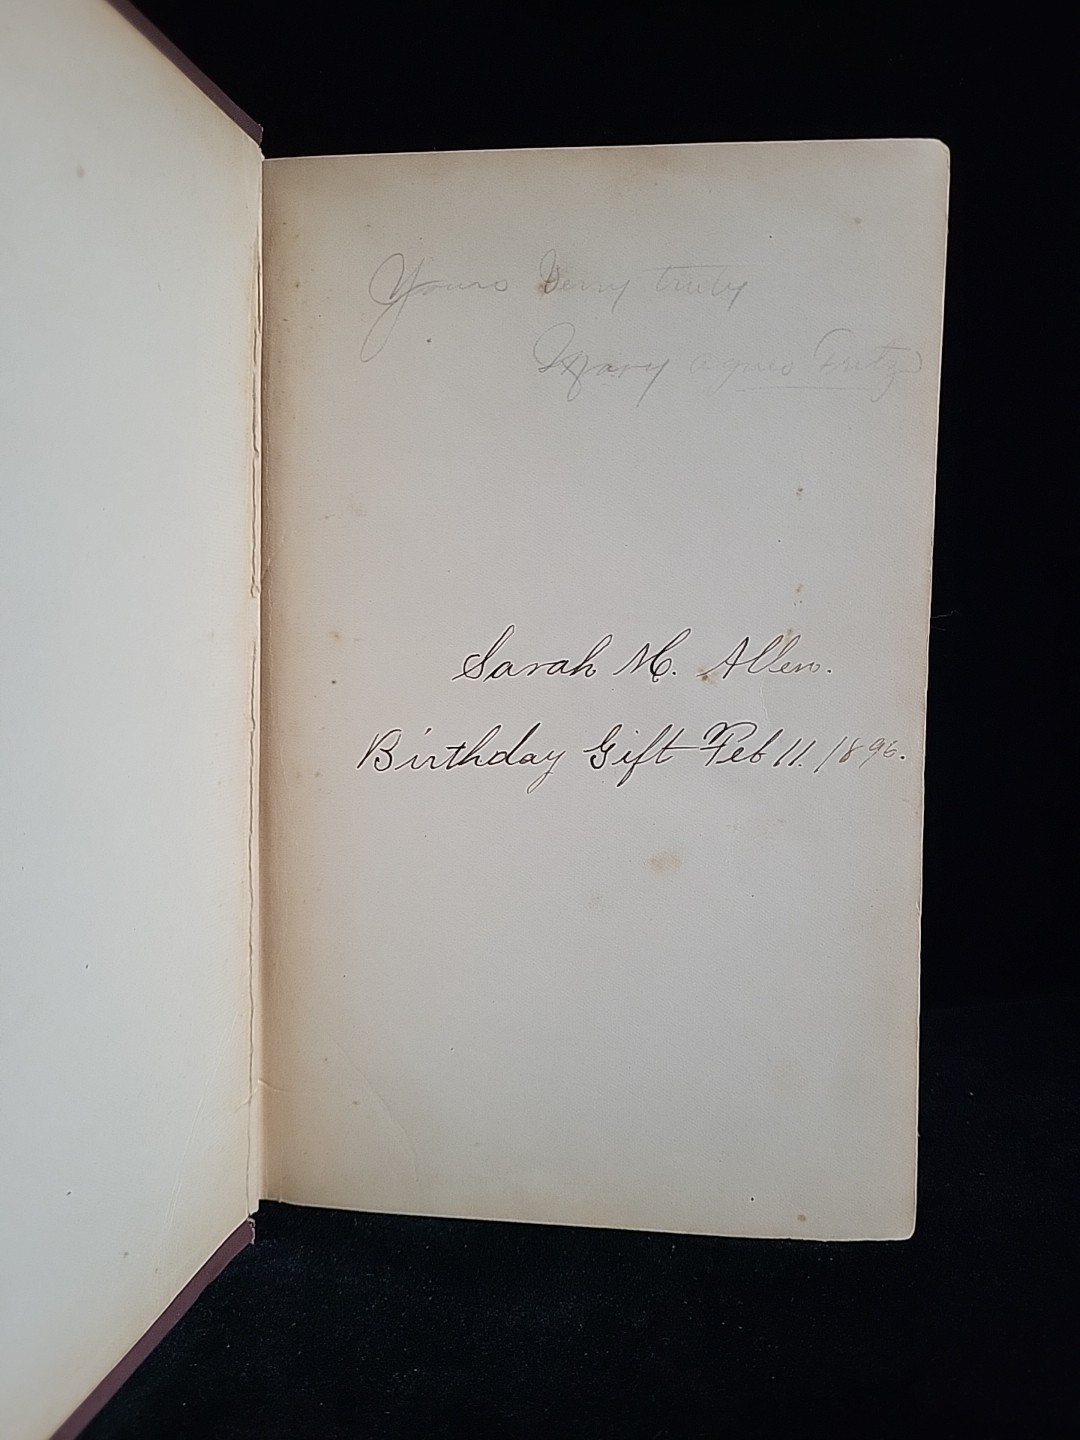 Yours Very truly
Mary agnes Fritz
Sarah M. Allen.
Birthday Gift Feb 11. 1896.